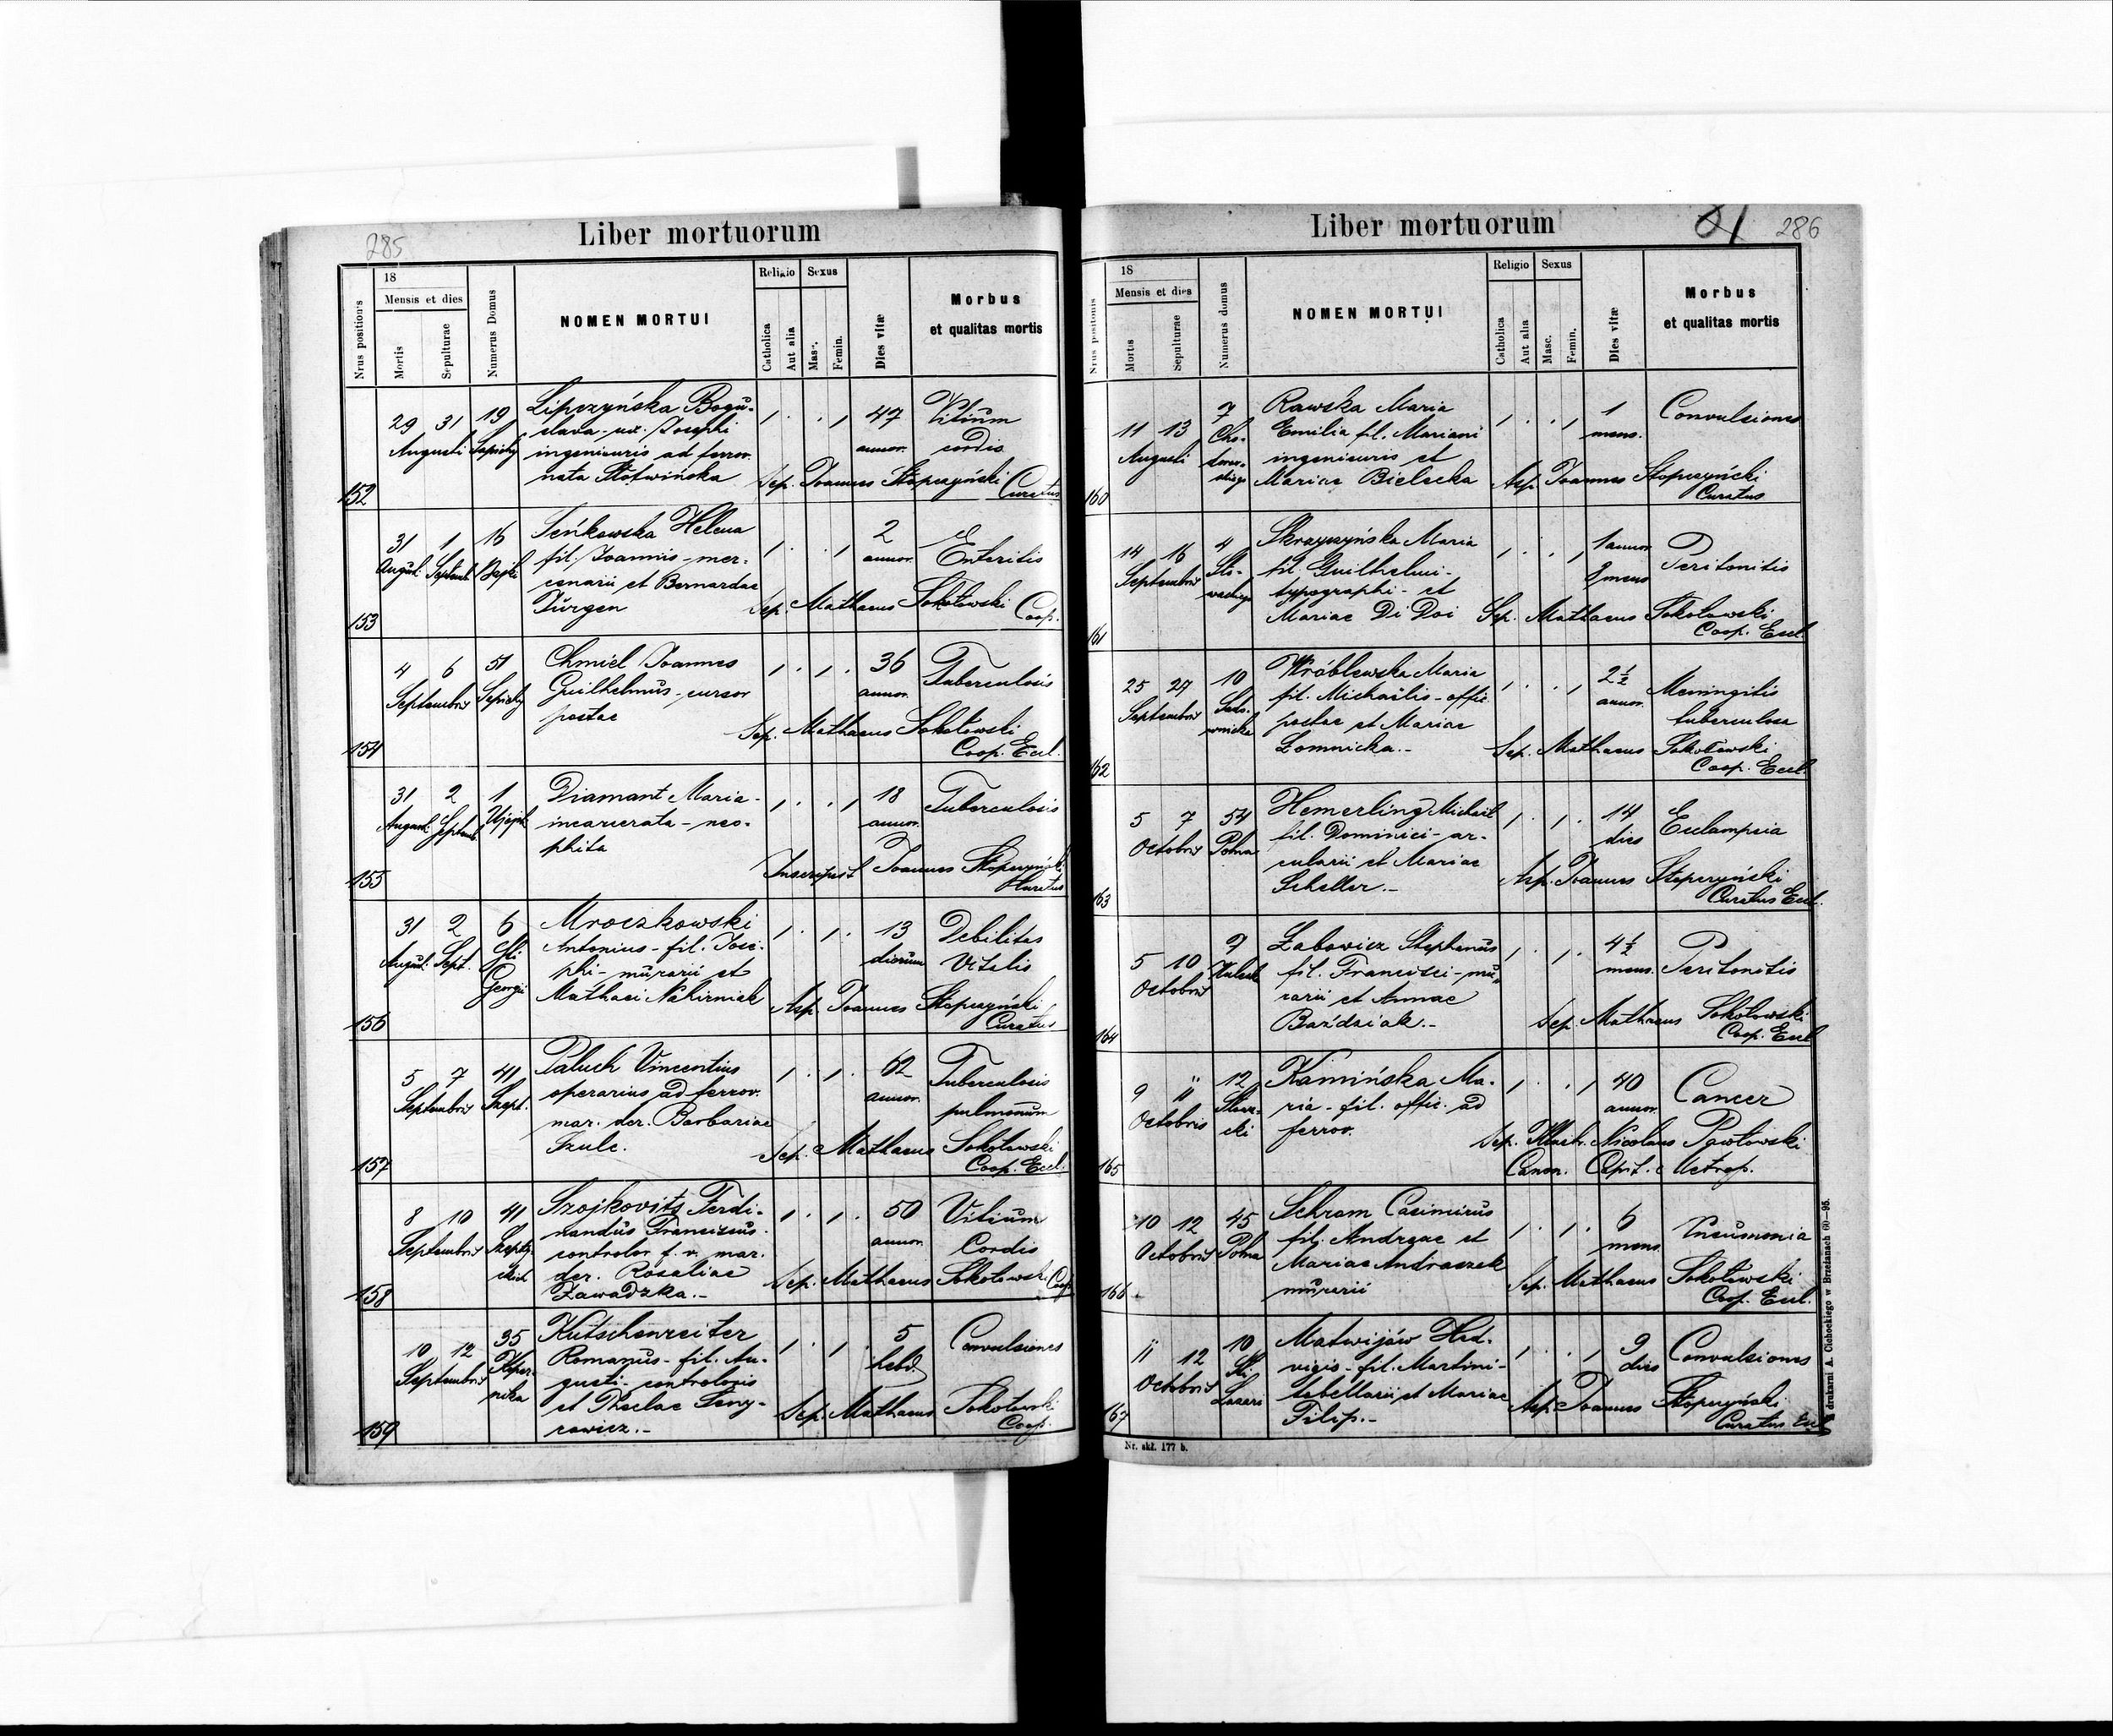 285
Liber mortuorum
Nrus positionis
18
Mensis et dies
Mortis
Sepulturae
Numerus Domus
NOMEN MORTUI
Religio
Catholica
Aut alia
Sexus
Masc.
Femin.
Dies vitæ
Morbus
et qualitas mortis
152
29 31
Augusti
19
Sapiehy
Lipczyńska Bogu-
slava - ux. Josephi
ingenieuris ad ferrov.
nata Słotwińska
47
annor.
Vitium
cordis
Sep. Joannes Stopczyński
Curatus
153
31 1
August. Septemb.
16
Bajki
Seńkowska Helena
fil. Joannis - mer-
cenarii et Bernardae
Jürgen
2
annor.
Enteritis
Sep. Mathaeus Sokołowski
Coop.
154
4 6
Septembris
51
Sapiehy
Chmiel Joannes
Guilhelmus - cursor
postae
36
annor.
Tuberculosis
Sep. Mathaeus Sokołowski
Coop. Eccl.
155
31 2
August. Septemb.
1
Ujejsk.
Diamant Maria -
incarcerata - neo-
phita
18
annor.
Tuberculosis
Inscripsit Joannes Stopczyński
Curatus
156
31 2
August. Sept.
6
Sti
Georgii
Mroczkowski
Antonius - fil. Jose-
phi - murarii et
Mathaei Nahirniak
13
dierum
Debilitas
Vitalis
Asp. Joannes Stopczyński
Curatus
157
5 7
Septembris
41
Szept.
Paluch Vincentius
operarius ad ferrov.
mar. der. Barbariae
Szulc.
62
annor.
Tuberculosis
pulmonum
Sep. Mathaeus Sokołowski
Coop. Eccl.
158
8 10
Septembris
41
Szepty-
ckich
Szojkovits Ferdi-
nandus Franciscus
controlor f. v. mar.
der. Rosaliae
Zawadzka.-
50
annor.
Vitium
Cordis
Sep. Mathaeus Sokołowski Coop.
159
10 12
Septembris
35
Koper-
nika
Kutschenreiter
Romanus - fil. Au-
gusti - controloris
et Theclae Seny-
rowicz.-
5
hebd.
Convulsiones
Sep. Mathaeus Sokołowski
Coop.
Liber mortuorum
286
Nrus positionis
18
Mensis et dies
Mortis
Sepulturae
Numerus domus
NOMEN MORTUI
Religio
Catholica
Aut alia
Sexus
Masc.
Femin.
Dies vitæ
Morbus
et qualitas mortis
160
11 13
Augusti
7
Rawska Maria
Emilia fil. Mariani
ingenieuris et
Mariae Bielecka
1
mens.
Convulsiones
Asp. Joannes Stopczyński
Curatus
161
14 16
Septembris
4
Sło-
wackiego
Skrzyszyńska Maria
fil. Guilhelmi -
typographi - et
Mariae Di Doi
1 annor.
mens.
Peritonitis
Sep. Mathaeus Sokołowski
Coop. Eccl.
162
25 27
Septembris
10
Sado-
wnicka
Wróblewska Maria
fil. Michaëlis - offic.
postae et Mariae
Łomnicka.-
2½
annor.
Meningitis
tuberculosa
Sep. Mathaeus Sokołowski
Coop. Eccl.
163
5 7
Octobris
54
Polna
Hemerling Michaël
fil. Dominici - ar-
cularii et Mariae
Scheller.-
14
dies
Eclampsia
Asp. Joannes Stopczyński
Curatus Eccl.
164
5 10
Octobris
7
Łabowicz Stephanus
fil. Francisci - mu-
rarii et Annae
Baździak.-
4½
mens.
Peritonitis
Sep. Mathaeus Sokołowski
Coop. Eccl.
165
9 11
Octobris
12
Kamińska Ma-
ria - fil. offic. ad
ferrov.
40
annor.
Cancer
Sep. Nicolaus
Canon. Capit. Metrop.
166
10 12
Octobris
45
Polna
Schram Casimirus
fil. Andreae et
Mariae Andraszek
murarii
6
mens.
Pneumonia
Sep. Mathaeus Sokołowski
Coop. Eccl.
167
11 12
Octobris
10
Sti
Lazari
Matwijów Hed-
vigis - fil. Martini -
tabellarii et Mariae
Filip.-
9
dies
Convulsiones
Asp. Joannes Stopczyński
Curatus Eccl.
Nr. akł. 177 b.
drukarni A. Cichockiego w Brzeżanach 60—95.